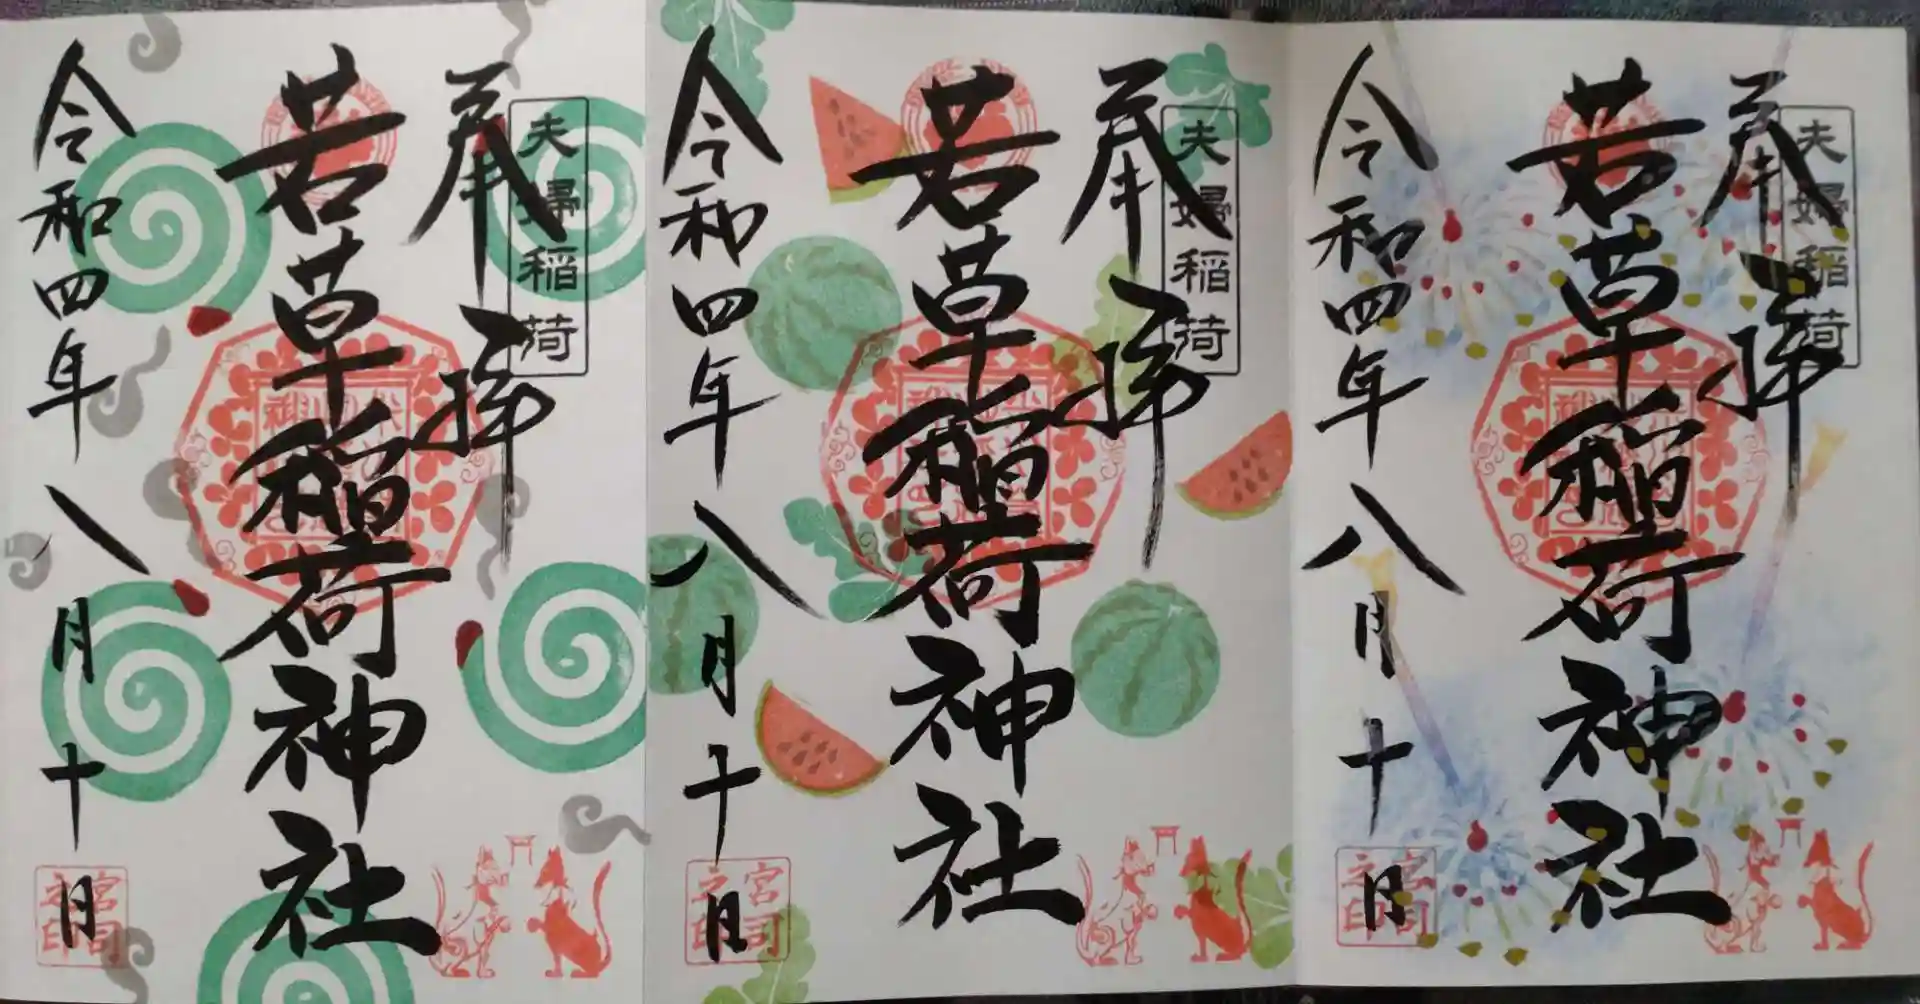 夫婦稲荷
奉拝
若草稲荷神社
令和四年八月十日
宮司之印
夫婦稲荷
奉拝
若草稲荷神社
令和四年八月十日
宮司之印
夫婦稲荷
奉拝
若草稲荷神社
令和四年八月十日
宮司之印